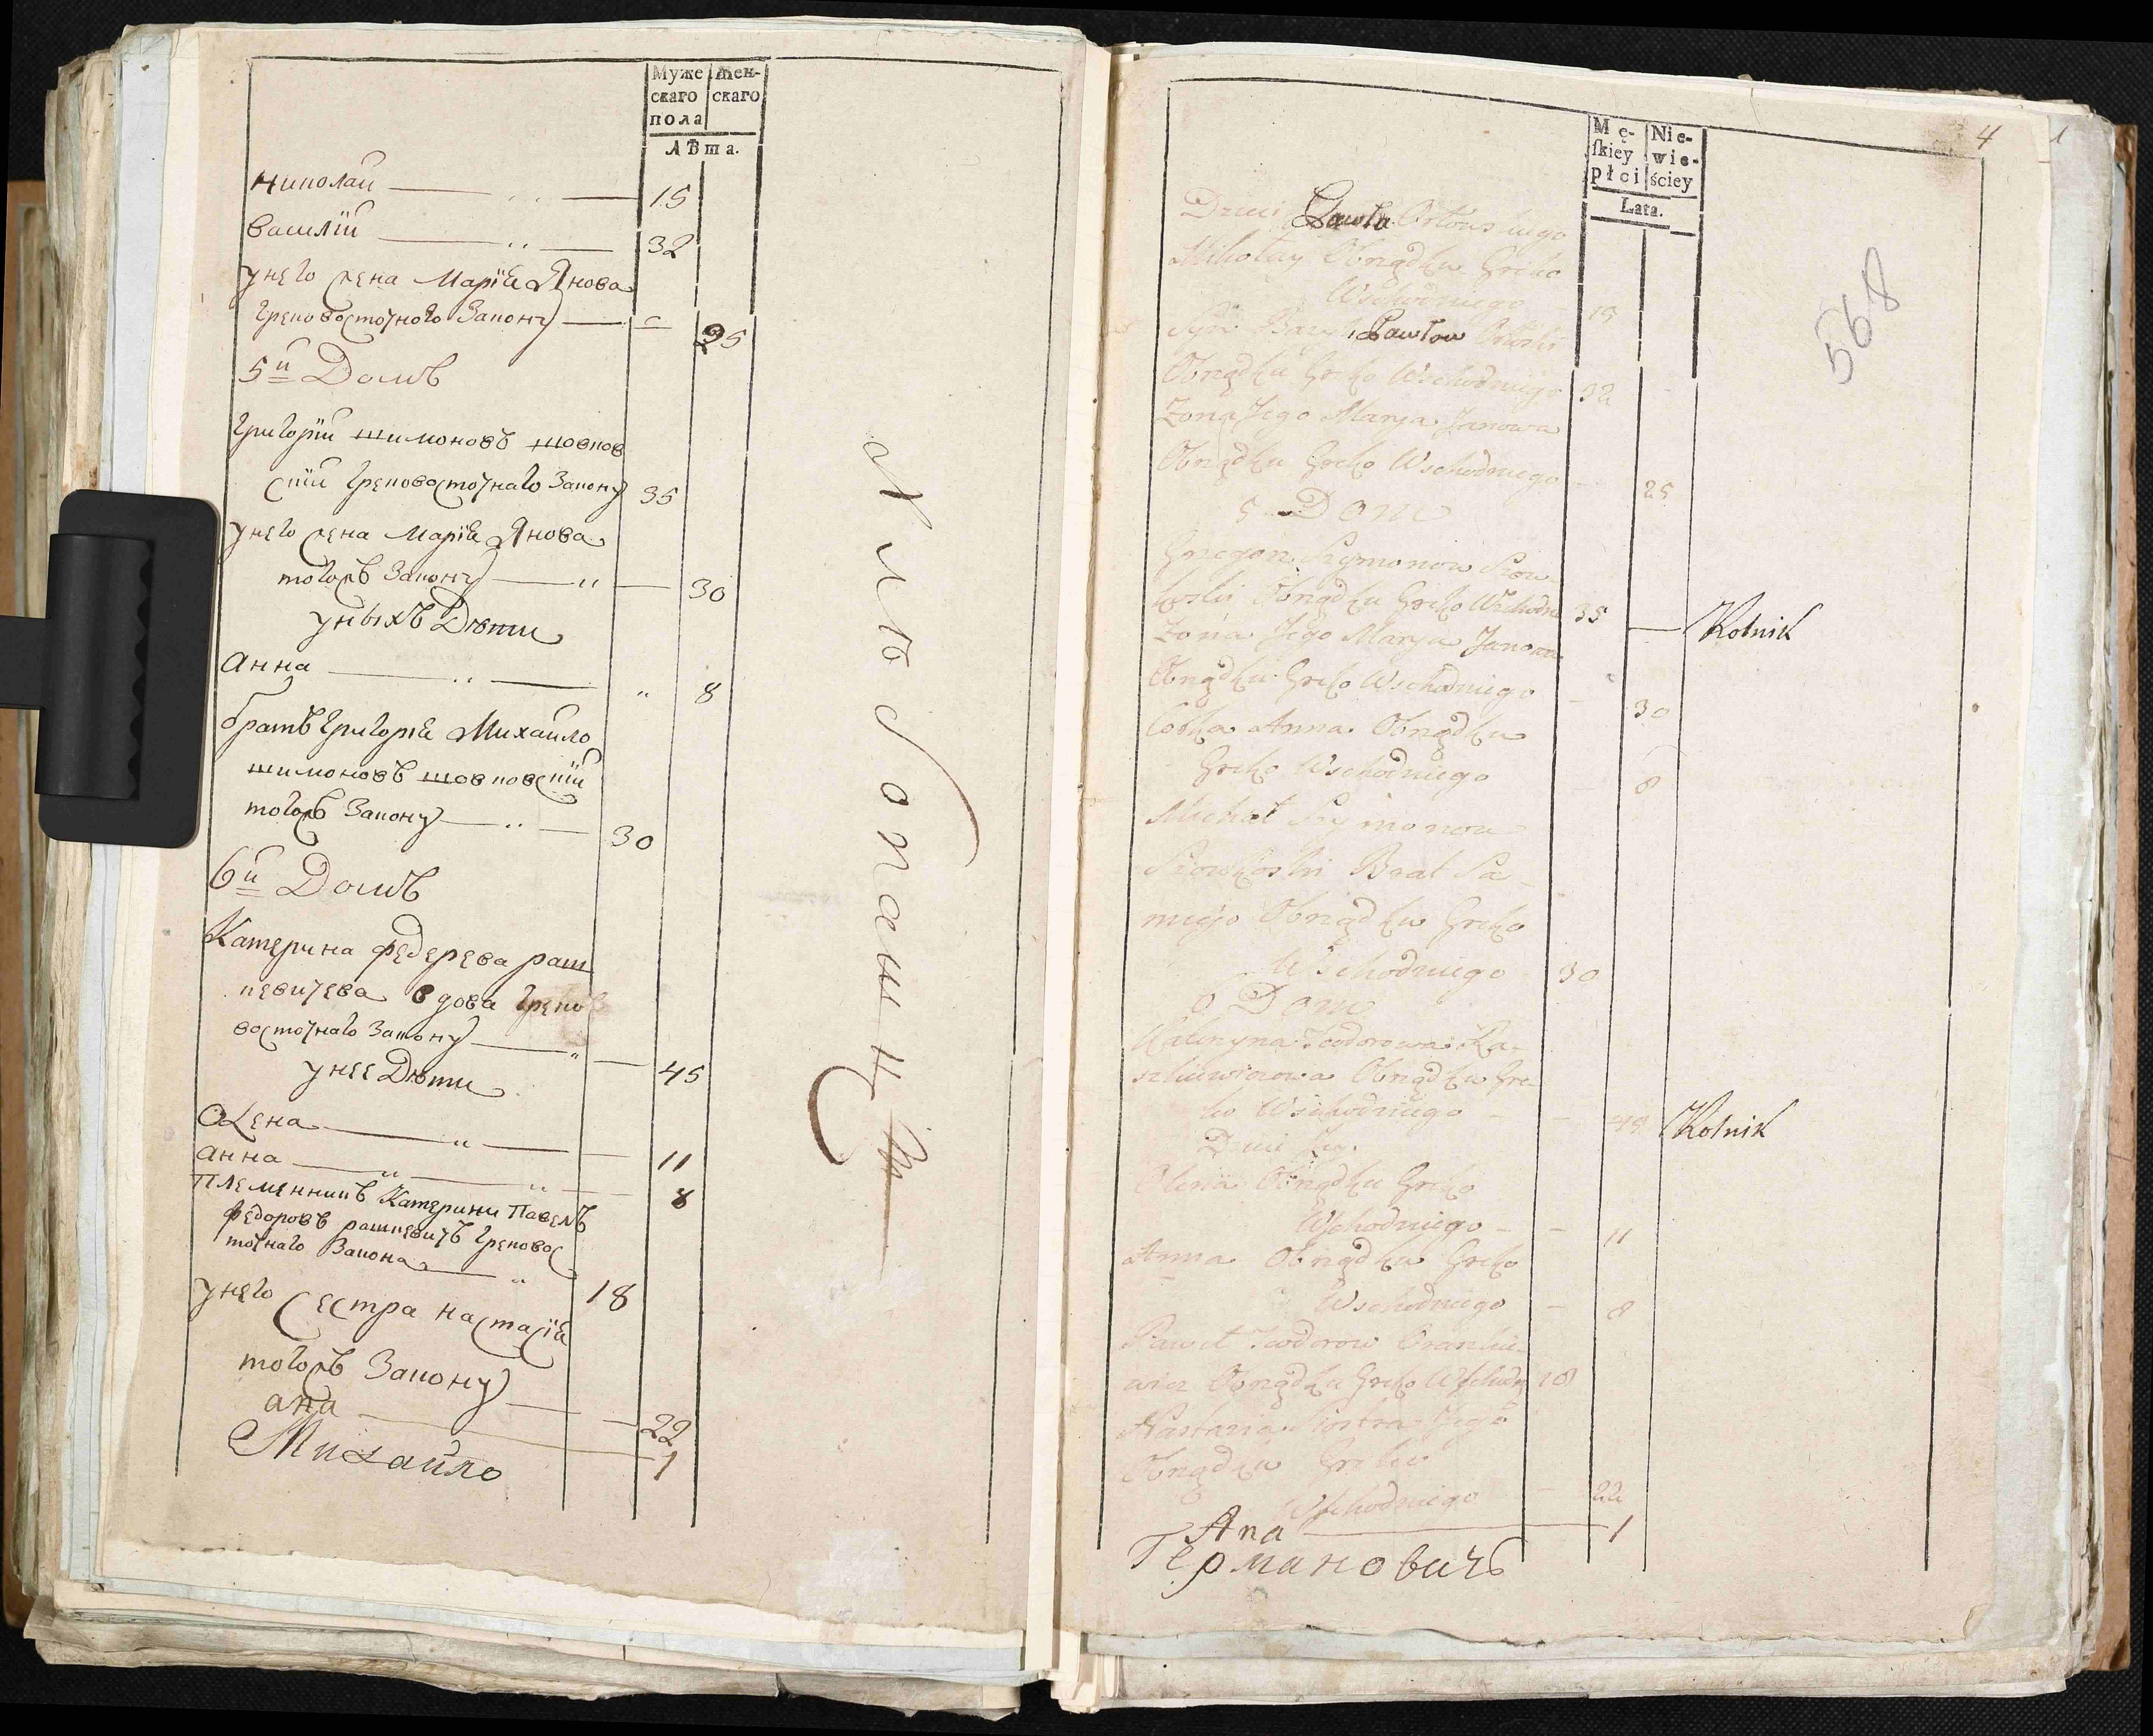 Муже Жен-
скаго скаго
пола
Лѣта.
Николай 15
Василій 32
у него жена Маріа Янова
Грековосточного Закону 25
5й Домъ
Григорій Шимоновъ Шовков
скій Грековосточнаго Закону 35
у него жена Маріа Янова
тогожъ Закону 30
у ныхъ Дѣти
Анна 8
братъ Григоріа Михайло
Шимоновъ Шовковскій
тогожъ Закону 30
6й Домъ
Катерина Федерева Раш
кевичева вдова Греко
восточнаго Закону 45
у нее Дѣти
Олена 11
Анна 8
Племенникъ Катерини Павелъ
Федоровъ Рашкевичъ Грековос
точнаго Закона 18
у него сестра Настасіа
тогожъ Закону 22
ана 1
Михайло
4
1
568
Mę- Nie-
ſkiey wie-
płci ściey
Lata.
Dzieci Pawła
Mikołay Obrządku Greko
Wschodniego 15
Syn Pawłow
Obrządku Greko Wschodniego 32
Zona Jego Marya Janowa
Obrządku Greko Wschodniego 25
5 Dom
Gregori Szymonow Szow-
koski Obrządku Greko Wschodn 35 Rolnik
Zona Jego Marya Janowa
Obrządku Greko Wschodniego 30
Corka Anna Obrządku
Greko Wschodniego 8
Michał Szymonow
Szowkoski Brat
Obrządku Greko
Wschodniego 30
6 Dom
Katerzyna Teodorowa Ra-
szkiewiczowa Obrządku Gre-
ko Wschodniego 45 Rolnik
Dzieci Jey
Olena Obrządku Greko
Wschodniego 11
Anna Obrządku Greko
Wschodniego 8
Paweł Teodorow
wicz Obrządku Greko Wschodn 18
Nastazia Siostra Jego
Obrządku Greko
Wschodniego 22
Ana 1
Германовичъ